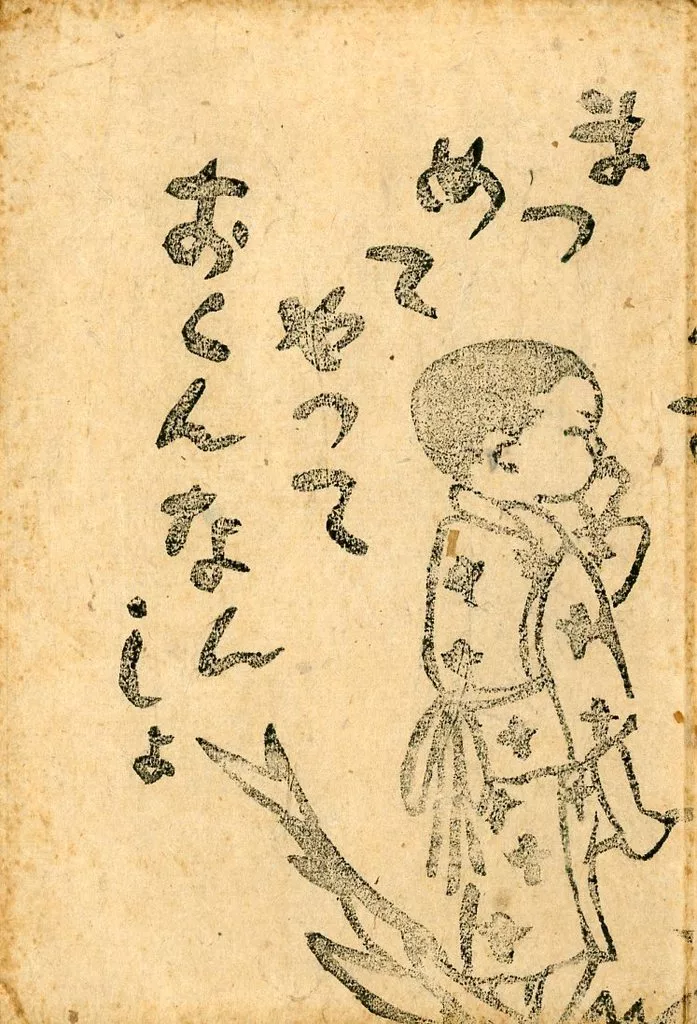 まつ
めて
やつて
おくんなん
しよ